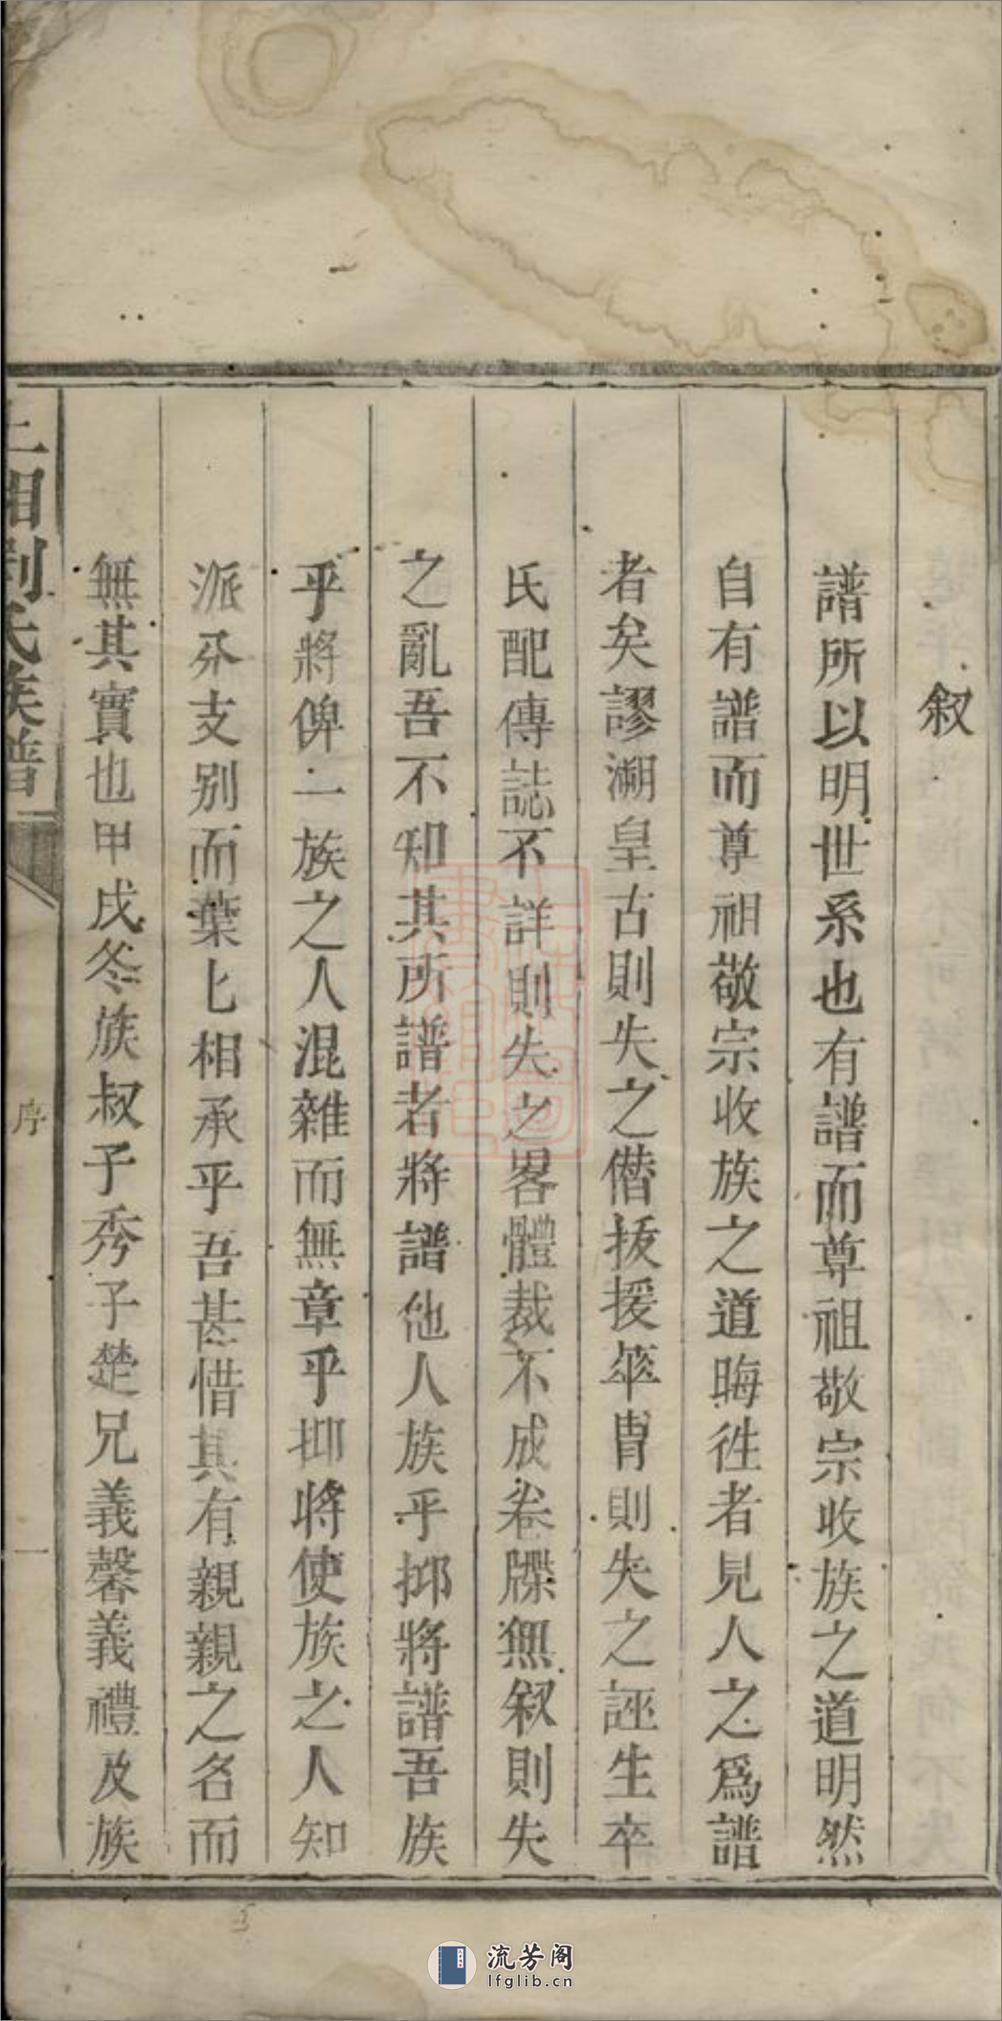 叙
譜所以明世系也有譜而尊祖敬宗收族之道明然
自有譜而尊祖敬宗收族之道晦徃者見人之爲譜
者矣謬溯皇古則失之僭扳援華胄則失之誣生卒
氏配傳誌不詳則失之畧體裁不成卷牒無叙則失
之亂吾不知其所譜者將譜他人族乎抑將譜吾族
乎將俾一族之人混雜而無章乎抑將使族之人知
派分支别而葉匕相承乎吾甚惜其有親親之名而
無其實也甲戌冬族叔子秀子楚兄義馨義禮及族
上湘劉氏族譜
序
一
流芳阁
lfglib.cn